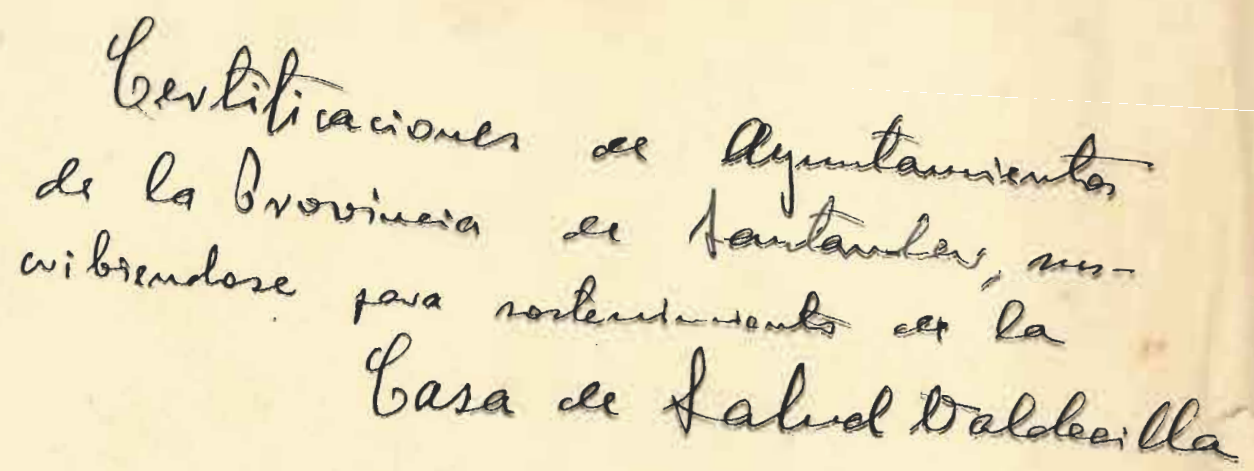 Certificaciones de Ayuntamientos
de la Provincia de Santander, sus-
cribiendose para sostenimiento de la
Casa de Salud Valdecilla